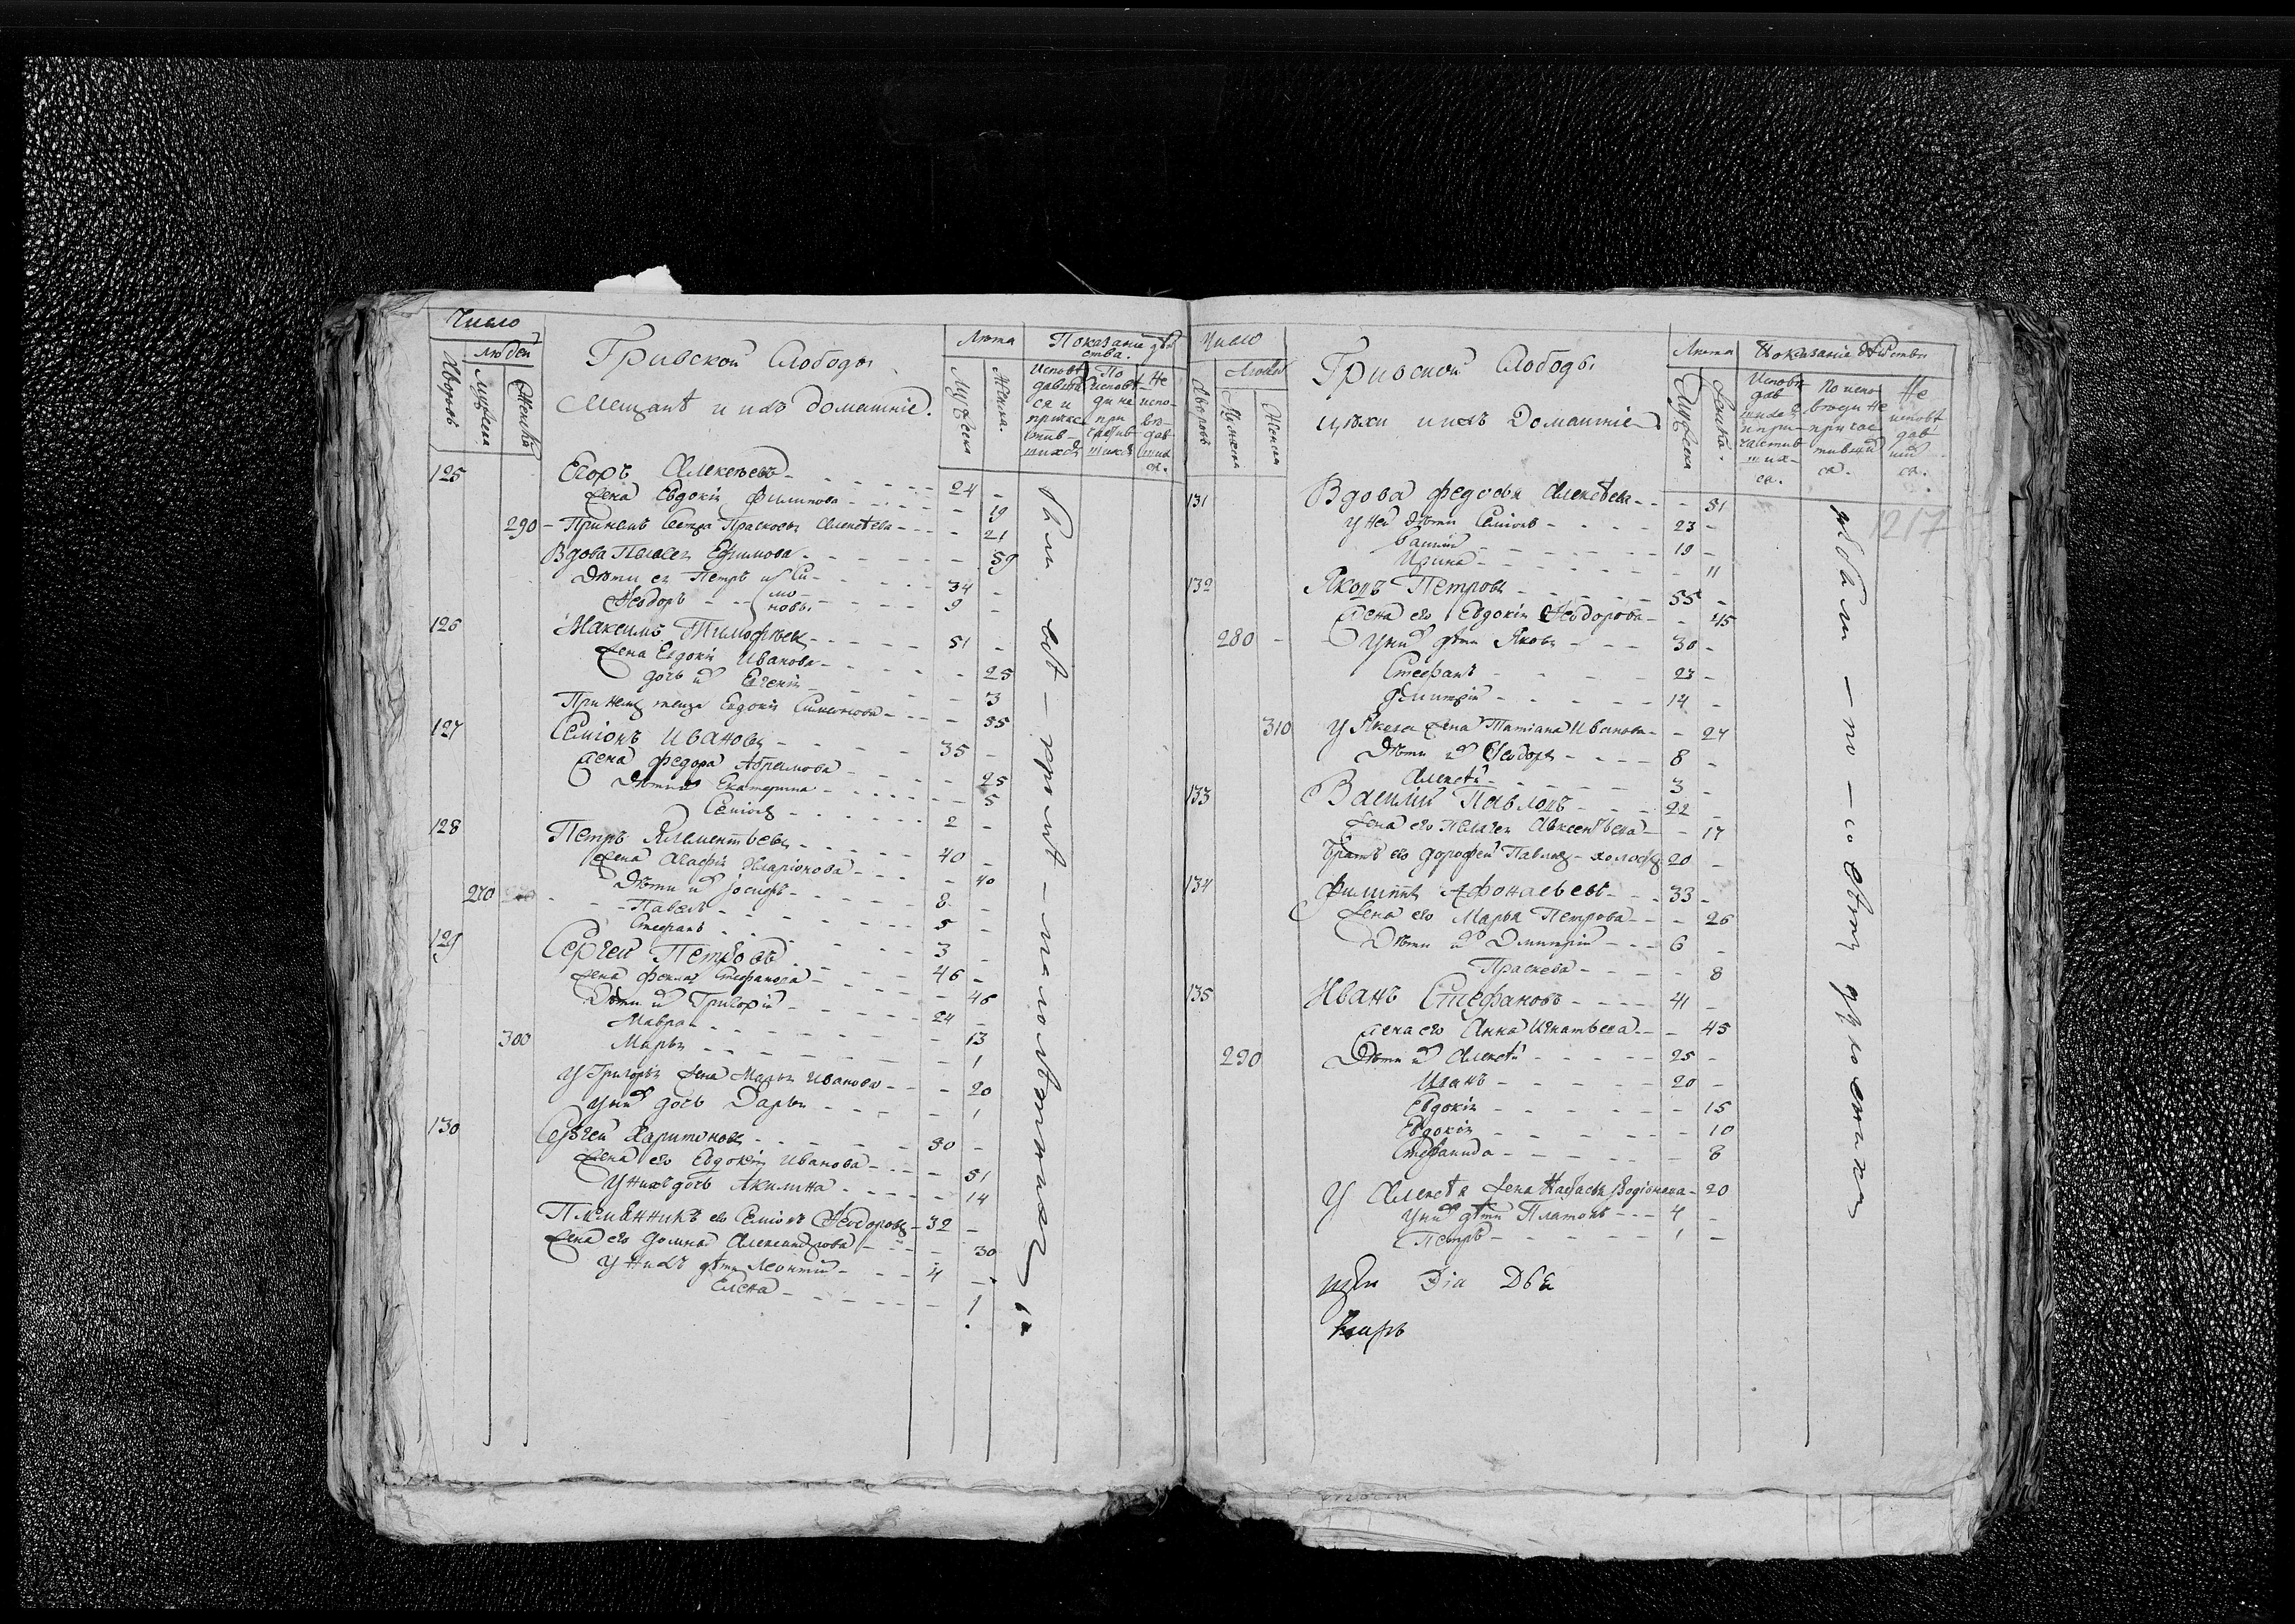 Число
людей
Дворовъ
Мужеска
Женска
Гривской Слободы
Мещанѣ и ихъ домашніе.
Лѣта
Мужеска
Женска.
Показаніе дѣй
ства.
Исповѣ
давши
ся и
прича
стив
шихся
По
исповѣ
ди не
при
частив
шихся
Не
испо
вѣ
дав
ших
ся.
125 Егоръ Алексѣевъ 24 -
жена Евдокія Филипова - 19
290 - При немъ сестра Прасковья Алексѣева - 21
Вдова Пелагея Ефимова - 59
Дѣти ея Петръ Си 34 -
Ѳеодоръ мо новы. 9 -
126 Максимъ Тимофѣевъ 51 -
жена Евдокія Иванова - 25
дочь их Евгенія - 3
При немъ теща Евдокія Симионова - 55
127 Семіонъ Ивановъ 35 -
жена Федора Абрамова - 25
Дѣти их Екатерина - 5
Семіонъ 2 -
128 Петръ Климентьевъ 40 -
жена Агафія Иларіонова - 40
Дѣти их Іосифъ 8 -
270 Павелъ 5 -
Стефанъ 3 -
129 Сергей Петровъ 46 -
жена Фекла Стефанова - 46
Дѣти их Григорій 24 -
Мавра - 13
300 Марья - 1
У Григорья жена Марья Иванова - 20
У них дочь Дарья - 1
130 Сергей Харитоновъ 50 -
жена его Евдокія Иванова - 51
У нихъ дочь Акилина - 14
Племянникъ его Семіонъ Ѳеодоровъ - 32 -
жена его Домна Александрова - 30
У нихъ дѣти Леонтій 4 -
Елена - 1
Число
Людей
Дворовъ
Мужеска
Женска
Гривской Слободы
цѣхи ихъ Домашніе
Лѣта
Мужеска
Женска.
Показаніе дѣйства
Исповѣ
дав
шихся
и при
частив
ших
ся.
По испо
вѣди не
причас
тивши
ся.
Не
исповѣ
дав
ши
ся.
1217
131 Вдова Федосья Алексѣева - 51
у ней дѣти Семіонъ 23 -
19 -
Ирина - 11
132 Яковъ Петровъ 55 -
жена его Евдокія Ѳеодорова - 45
280 - У них дѣти Яковъ 30 -
Стефанъ 23 -
Димитрій 14 -
310 У Якова жена Татіана Иванова - 27
Дѣти их Ѳеодоръ 8 -
Алексѣй 3 -
133 Василій Павловъ 22 -
жена его Пелагея Авксентьева - 17
Братъ его Дорофей Павловъ - холостъ 20 -
134 Филиппъ Афонасьевъ 33 -
жена его Марья Петрова - 26
Дѣти их Дмитрій 6 -
Праскева - 8
135 Иванъ Стефановъ 41 -
жена его Анна Игнатьева - 45
290 Дѣти их Алексѣй 25 -
Иванъ 20 -
Евдокія - 15
Евдокія - 10
Стефанида - 8
У Алексѣя жена Настасья Родіонова - 20
У них дѣти Платонъ 4 -
Петръ 1 -